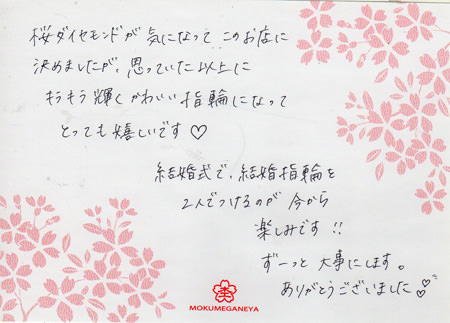 桜ダイヤモンドが気になって このお店に
決めましたが、思っていた以上に
キラキラ輝くかわいい指輪になって
とっても嬉しいです♡
結婚式で、結婚指輪を
2人でつけるのが 今から
楽しみです!!
ずーっと大事にします。
ありがとうございました♡
MOKUMEGANEYA